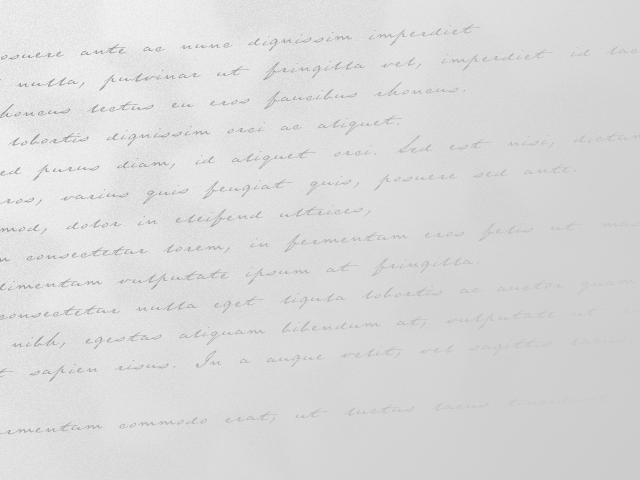 posuere ante ac nunc dignissim imperdiet
nulla, pulvinar ut fringilla vel, imperdiet id
rhoncus lectus eu eros faucibus rhoncus.
lobortis dignissim orci ac aliquet.
sed purus diam, id aliquet orci. Sed est nisi, dictum
eros, varius quis feugiat quis, posuere sed ante.
mod, dolor in eleifend ultrices,
consectetur lorem, in fermentum eros felis ut
dimentum vulputate ipsum at fringilla.
consectetur nulla eget ligula lobortis ac auctor quam
nibh, egestas aliquam bibendum at, vulputate ut
sapien risus. In a augue velit, vel sagittis lacus
rmentum commodo erat, ut luctus lacus